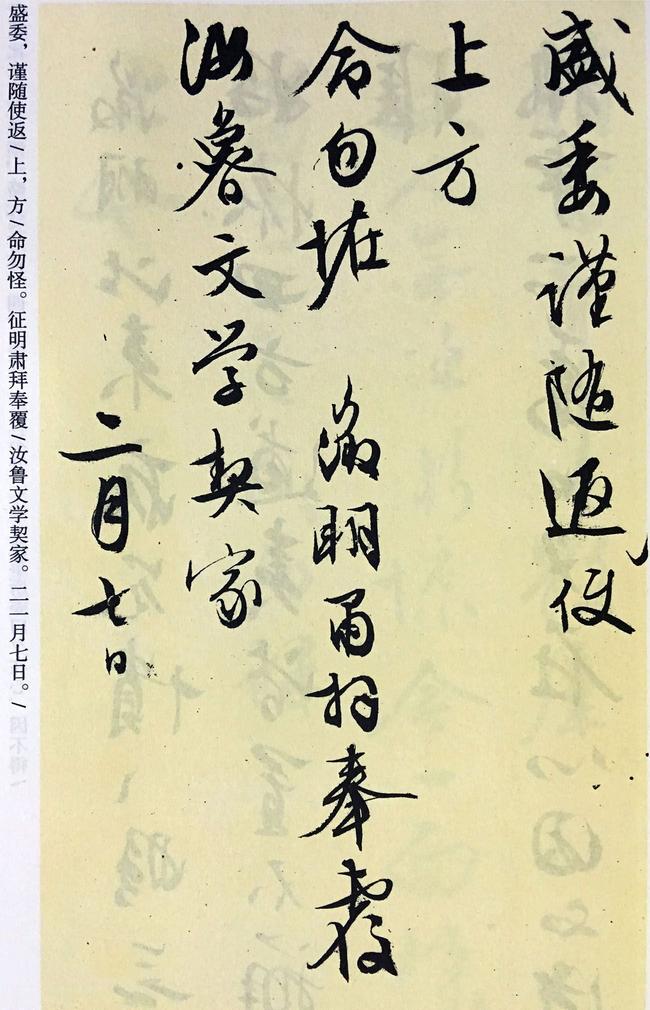 盛委謹随返使
上方
命勿恠 徵明肅拜奉覆
汝魯文学契家
二月七日
盛委，谨随使返/上，方/命勿怪。征明肃拜奉覆/汝鲁文学契家。二一月七日。/